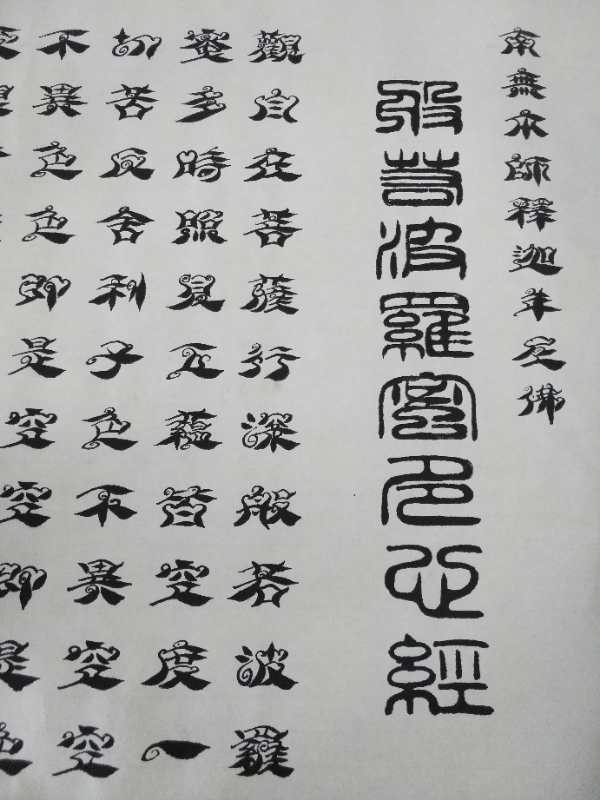 南無本師釋迦牟尼佛
般若波羅蜜多心經
觀自在菩薩行深般若波羅
蜜多時照見五蘊皆空度一
切苦厄舍利子色不異空空
不異色色即是空空即是色